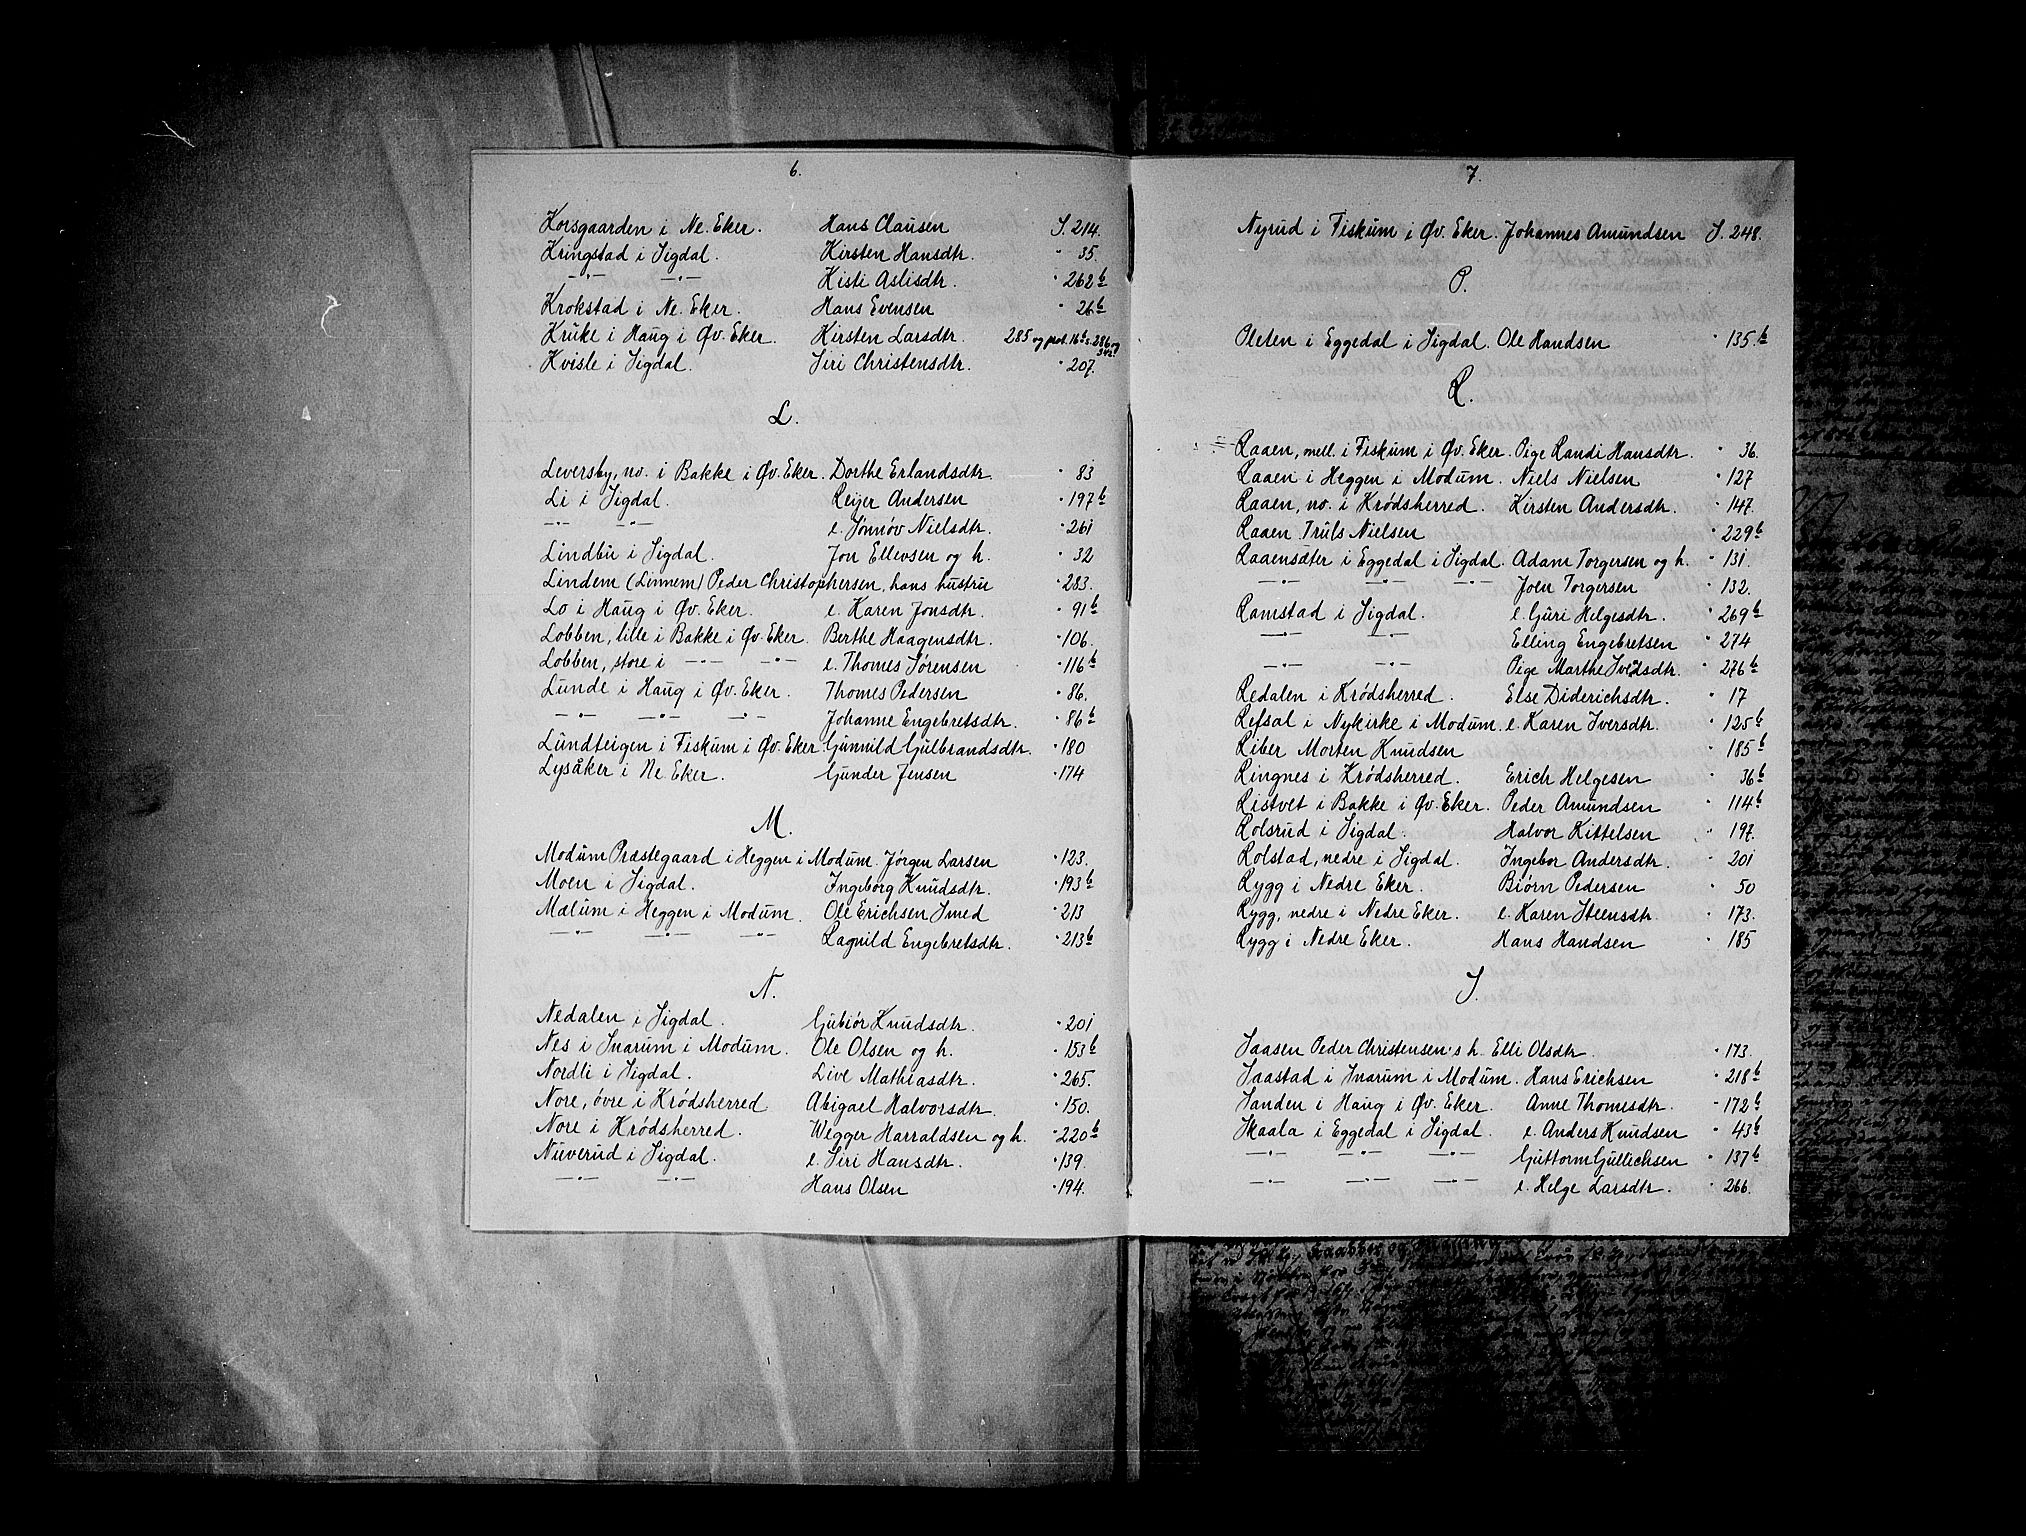 6.
Korsgaarden i Ne. Eker. Hans Clausen S. 214.
Kringstad i Sigdal. Kirsten Hansdtr. " 35.
—"— —"— Kisti Aslisdtr. " 262b
Krokstad i Ne. Eker. Hans Evensen " 26b
Kruke i Haug i Øv. Eker. Kirsten Larsdtr. 285 og prot. 16b s. 286 og 342.
Kvisle i Sigdal. Siri Christensdtr. " 207.
L.
Leversby, no. i Bakke i Øv. Eker. Dorthe Erlandsdtr. " 83
Li i Sigdal. Reijer Andersen " 197b
—"— —"— e. Jønnøv Nielsdtr. " 261
Lindbu i Sigdal. Jon Ellevsen og h. " 32
Lindem (Linnem) Peder Christophersen, hans hustru " 283.
Lo i Haug i Øv. Eker. e. Karen Jonsdtr. " 91b
Lobben, lille i Bakke i Øv. Eker. Berthe Haagensdtr. " 106.
Lobben, store i —"— —"— e. Thomes Sørensen " 116b
Lunde i Haug i Øv. Eker. Thomes Pedersen " 86.
—"— —"— —"— Johanne Engebretsdtr. " 86b
Lundteigen i Fiskum i Øv. Eker. Gunnild Gulbrandsdtr. " 180
Lysåker i Ne. Eker. Gunder Jensen " 174
M.
Modum Præstegaard i Heggen i Modum. Jørgen Larsen " 123.
Moen i Sigdal. Ingeborg Knudsdtr. " 193b
Mælum i Heggen i Modum. Ole Erichsen Smed " 213
—"— —"— —"— Ragnild Engebretsdtr. " 213b
N.
Nedalen i Sigdal. Gubiør Knudsdtr. " 201
Nes i Snarum i Modum. Ole Olsen og h. " 153b
Nordli i Sigdal. Live Mathiasdtr. " 265.
Nore, øvre i Krødsherred Abigael Halvorsdtr. " 150.
Nore i Krødsherred. Wegger Harraldsen og h. " 220b
Nuverud i Sigdal. e. Siri Hansdtr. " 139.
—"— —"— Hans Olsen " 194.
7.
Nyrud i Fiskum i Øv. Eker. Johannes Amundsen S. 248.
P.
Pleten i Eggedal i Sigdal. Ole Handsen " 135b
R.
Raaen, mell. i Fiskum i Øv. Eker. Pige Randi Hansdtr. " 36.
Raaen i Heggen i Modum. Niels Nielsen " 127
Raaen, no. i Krødsherred. Kirsten Andersdtr. " 147.
Raaen Truls Nielsen " 229b
Raaensæter i Eggedal i Sigdal. Adam Torgersen og h. " 131.
—"— —"— —"— Joen Torgersen " 132.
Ramstad i Sigdal. e. Guri Helgesdtr. " 269b
—"— —"— Elling Engebretsen " 274
—"— —"— Pige Marthe Iversdtr. " 276b
Redalen i Krødsherred. Else Diderichsdtr. " 17
Refsal i Nykirke i Modum. e. Karen Iversdtr. " 125b
Riber Morten Knudsen " 185b
Ringnes i Krødsherred. Erich Helgesen " 36b
Ristvet i Bakke i Øv. Eker. Peder Amundsen " 114b
Rolsrud i Sigdal. Halvor Kittelsen " 197.
Rolstad, nedre i Sigdal. Ingebor Andersdtr. " 201
Rygg i Nedre Eker. Biørn Pedersen " 50
Rygg, nedre i Nedre Eker. e. Karen Steensdtr. " 173.
Rygg i Nedre Eker. Hans Handsen " 185
S.
Saasen Peder Christensen's h. Elli Olsdtr. " 173.
Saastad i Snarum i Modum. Hans Erichsen " 218b
Sanden i Haug i Øv. Eker. Anne Thomesdtr. " 172b
Skaala i Eggedal i Sigdal. e. Anders Knudsen " 43b
—"— —"— —"— Guttorm Gullichsen " 137b
—"— —"— —"— e. Helge Larsdtr. " 266.